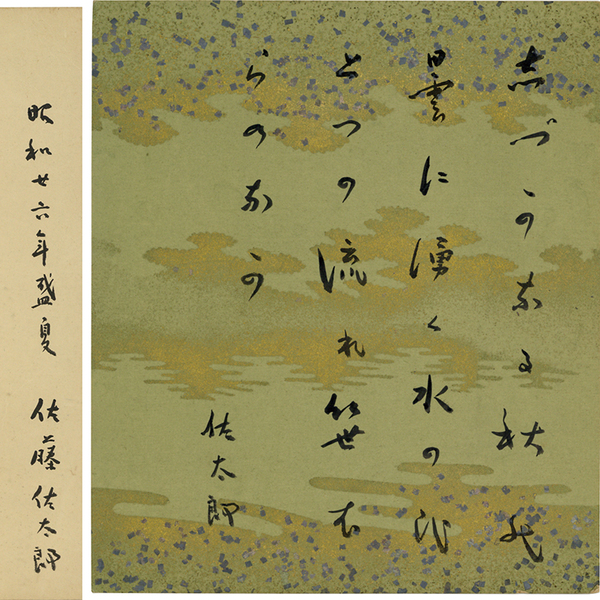 志づかなる秋の
曇に湧く水のひ
とつの流れ笹む
らのなか
佐太郎
昭和廿六年盛夏 佐藤佐太郎